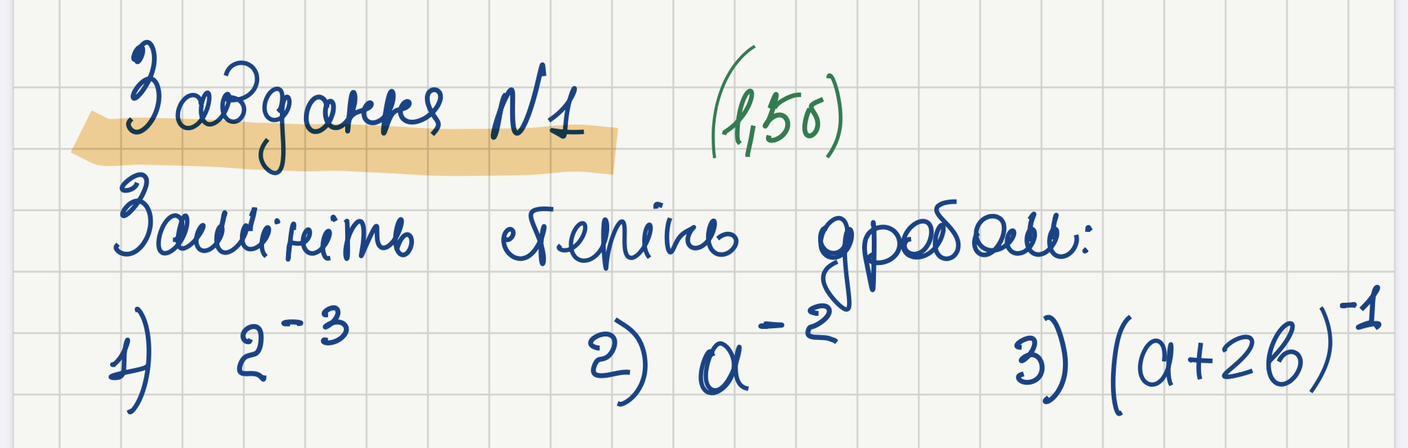 Завдання №1 (1,5б)
Замініть степінь дробом:
1) 2⁻³ 2) a⁻² 3) (a+2b)⁻¹